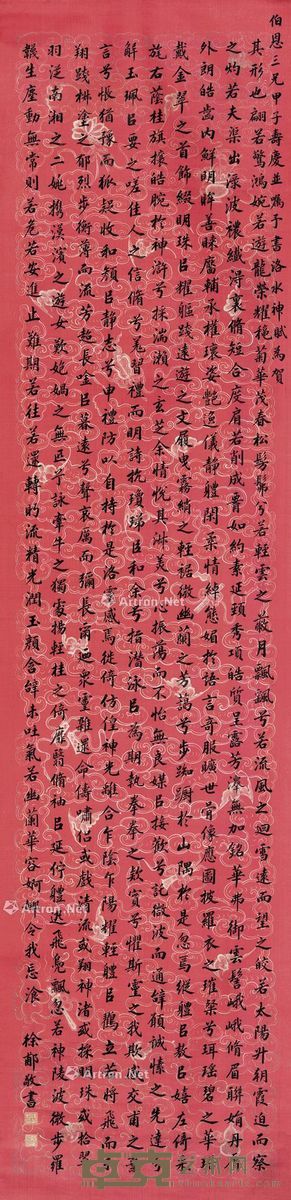 伯恩三兄甲子壽慶並為予書洛水神賦為賀
其形也翩若驚鴻婉若遊龍榮耀秋菊華茂春松髣髴兮若輕雲之蔽月飄飄兮若流風之迴雪遠而望之皎若太陽升朝霞迫而察
之灼若夫渠出淥波穠纖得衷脩短合度肩若削成腰如約素延頸秀項皓質呈露芳澤無加鉛華弗御雲髻峨峨脩眉聯娟丹脣
外朗皓齒內鮮明眸善睞靨輔承權瓌姿艷逸儀靜體閑柔情綽態媚於語言奇服曠世骨像應圖披羅衣之璀粲兮珥瑤碧之華琚
戴金翠之首飾綴明珠㠯耀軀踐遠遊之文履曳霧綃之輕裾微幽蘭之芳藹兮步踟躕於山隅於是忽焉縱體㠯遨㠯嬉左倚采
旄右蔭桂旗攘皓腕於神滸兮採湍瀨之玄芝余情悅其淑美兮心振蕩而不怡無良媒㠯接歡兮託微波而通辭願誠愫之先達
解玉珮㠯要之嗟佳人之信脩兮羌習禮而明詩抗瓊珶㠯和余兮指潛泳㠯為期執拳拳之款實兮懼斯靈之我欺感交甫之棄
言兮悵猶豫而狐疑收和顏㠯靜志兮申禮防以自持於是洛靈感焉徙倚仿偟神光離合乍陰乍陽耀輕體㠯鶴立若將飛而未
翔踐椒塗之郁烈步蘅薄而流芳超長吟㠯慕遠兮聲哀厲而彌長爾迺衆靈雜遝命儔嘯侶或戲清流或翔神渚或採明珠或拾翠
羽從南湘之二妃攜漢濱之遊女歎匏媧之無匹兮詠牽牛之獨處揚輕桂之倚靡翳脩袖㠯延佇體迅飛鳧飄忽若神陵波微步羅
韈生塵動無常則若危若安進止難期若往若還轉眄流精光潤玉顏含辭未吐氣若幽蘭華容婀娜令我忘飡 徐郙敬書